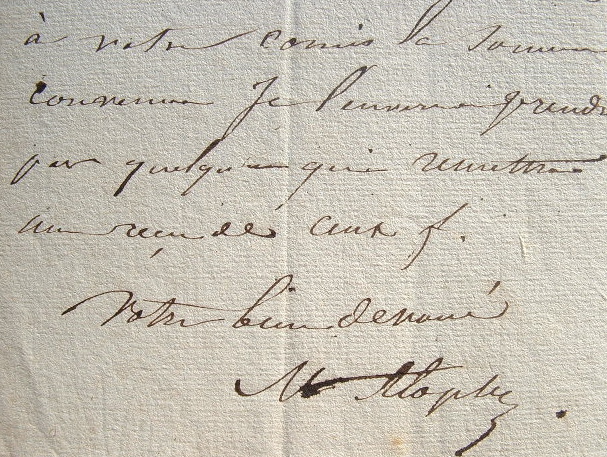 à votre comis la somme
convenue Je l'enverrai prendre
par quelqu'un qui remettra
un reçu de ceux f.
Votre bien dévoué